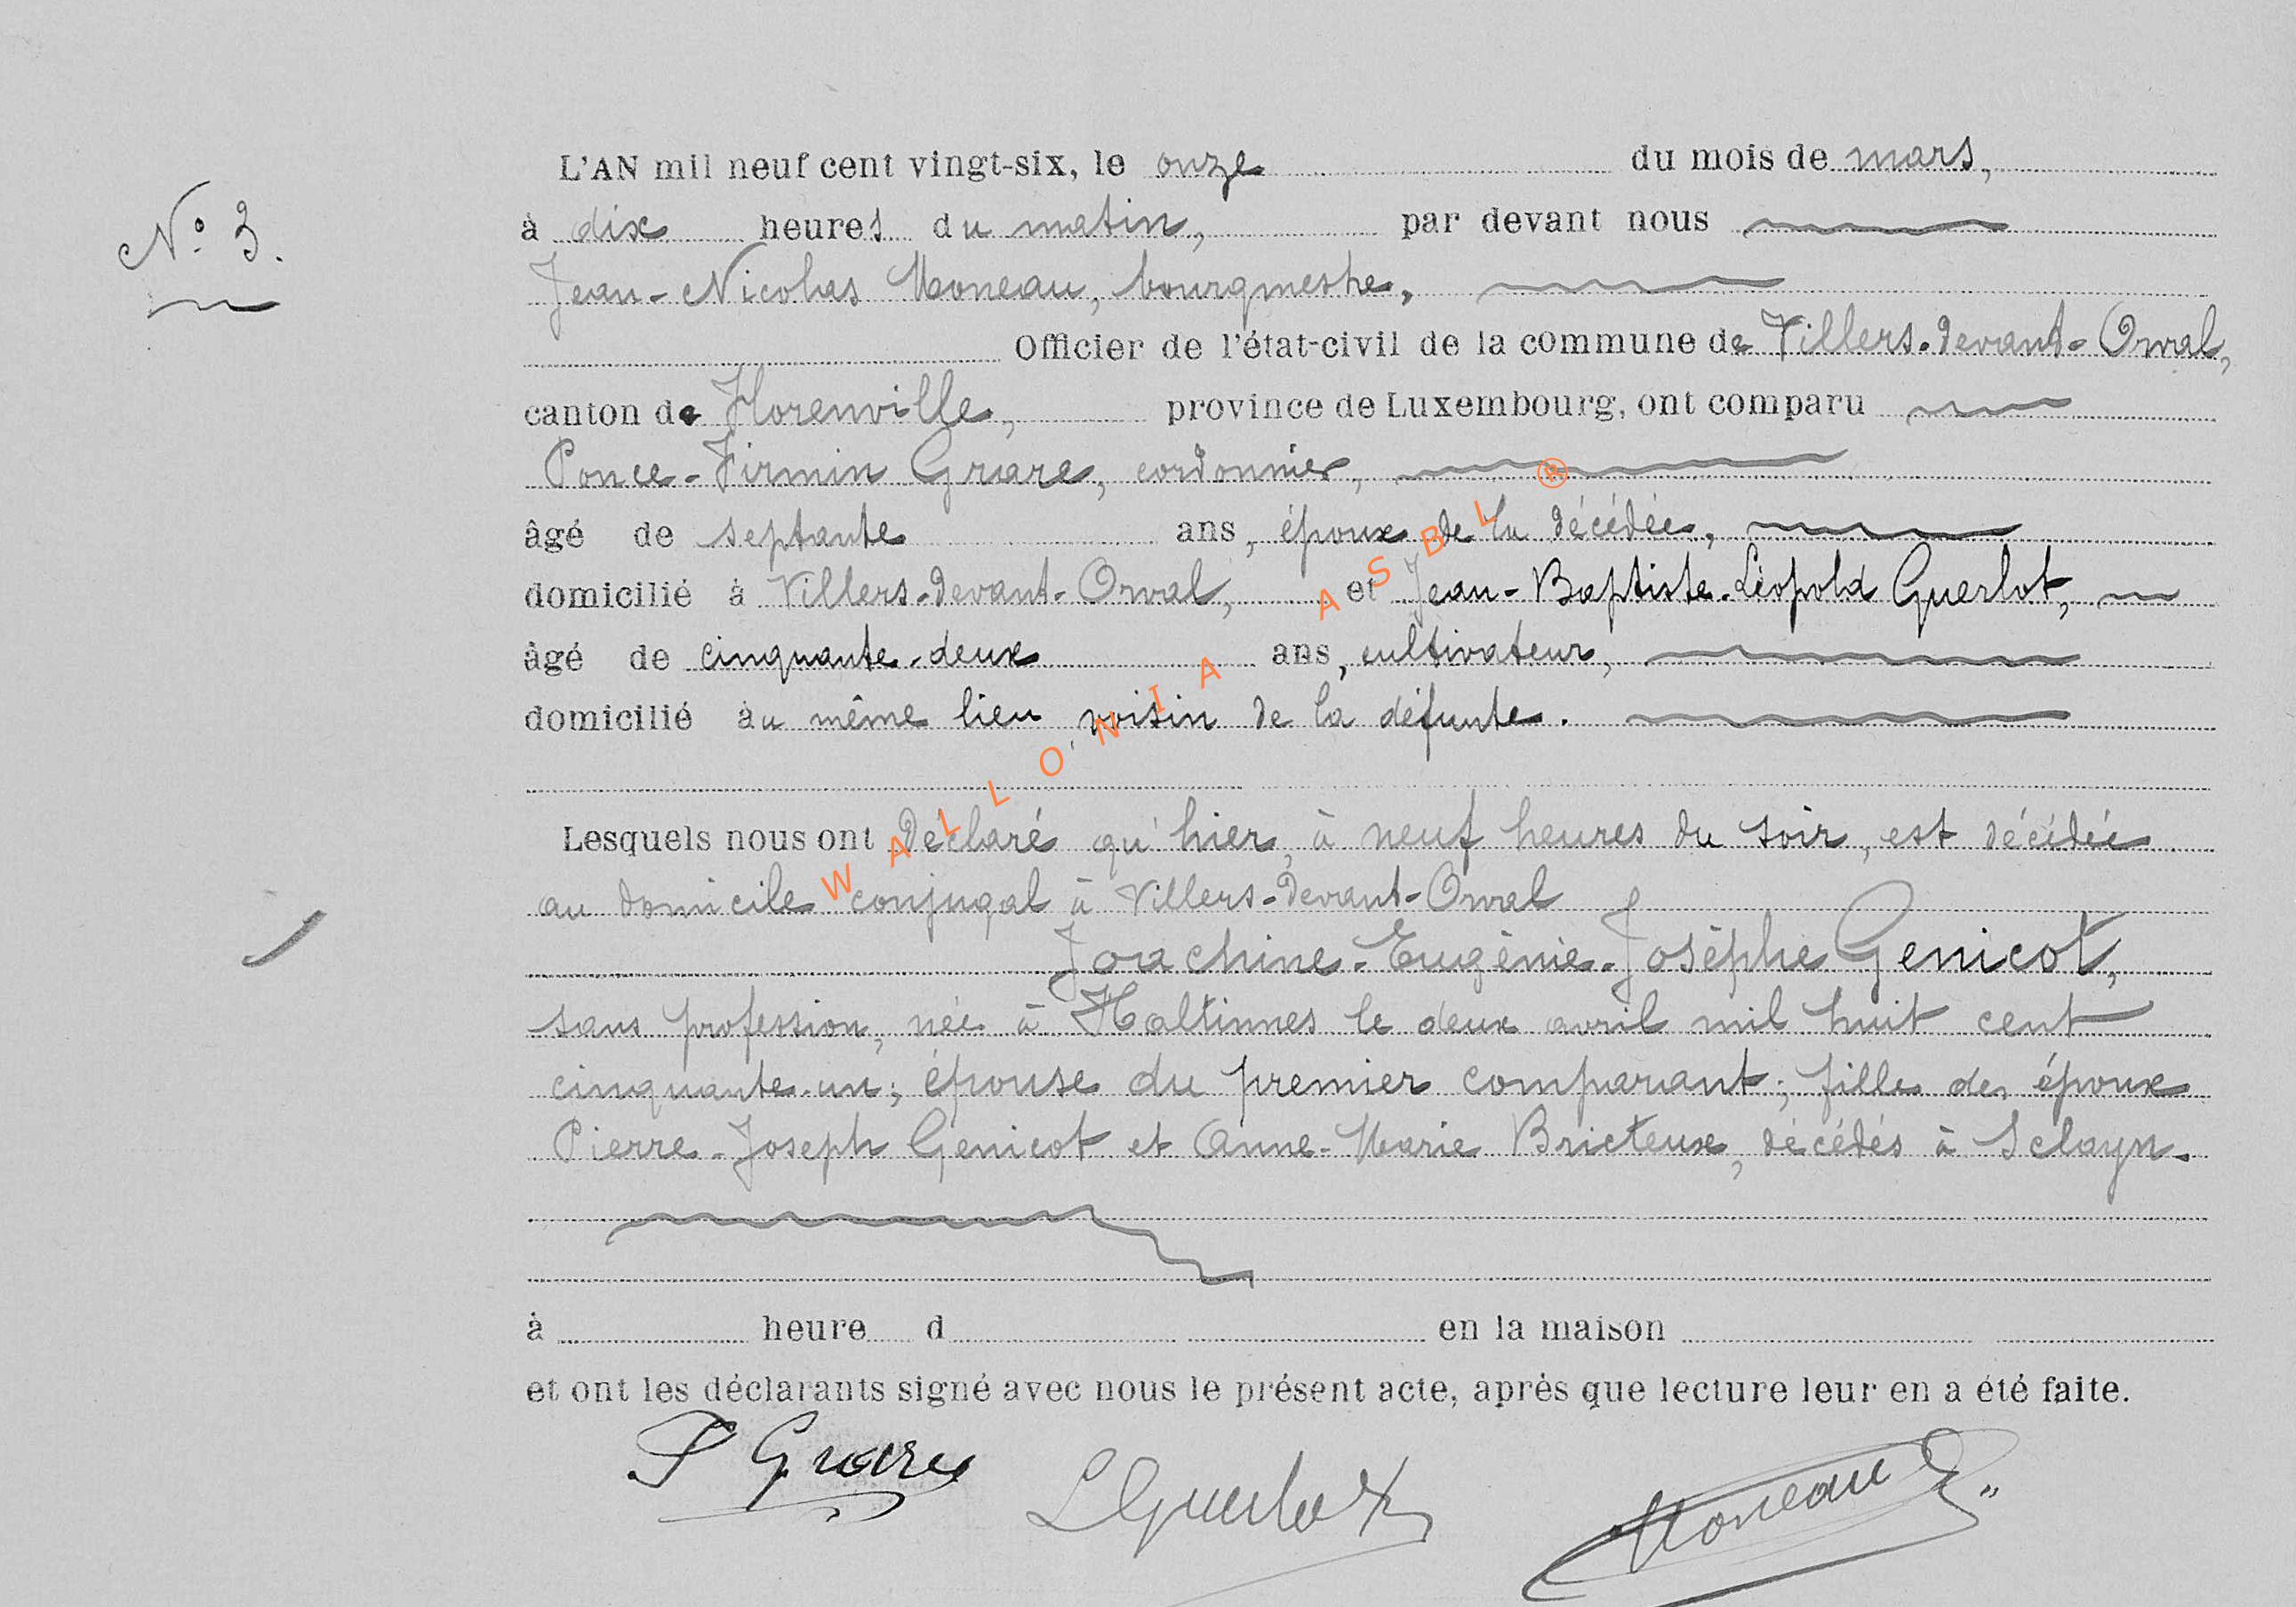 L'AN mil neuf cent vingt-six, le onze du mois de mars,
N° 3.
à dix heures du matin, par devant nous
Jean-Nicolas Moneau, bourgmestre,
Officier de l'état-civil de la commune de Villers-devant-Orval,
canton de Florenville, province de Luxembourg, ont comparu
Ponce-Firmin Grare, cordonnier,
âgé de septante ans, époux de la décédée,
domicilié à Villers-devant-Orval, et Jean-Baptiste-Léopold Guerlot,
âgé de cinquante-deux ans, cultivateur,
domicilié au même lieu voisin de la défunte.
Lesquels nous ont déclaré qu'hier, à neuf heures du soir, est décédée
au domicile conjugal à Villers-devant-Orval
Joachine-Eugènie-Josèphe Genicot,
sans profession, née à Haltinnes le deux avril mil huit cent
cinquante-un; épouse du premier comparant; fille des époux
Pierre-Joseph Genicot et Anne-Marie Bricteux, décédés à Sclayn.
à heure d en la maison
et ont les déclarants signé avec nous le présent acte, après que lecture leur en a été faite.
P Grare
L Guerlot
Moneau
WALLONIA ASBL ®